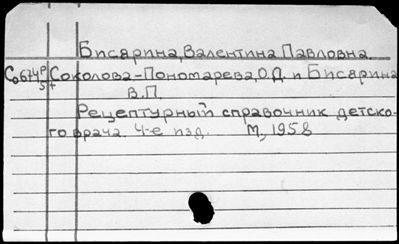 Бисярина, Валентина Павловна.
Соколова-Пономарева, О.Д. и Бисярина
В.П.
Рецептурный справочник детско-
го врача. 4-е изд. М., 1958